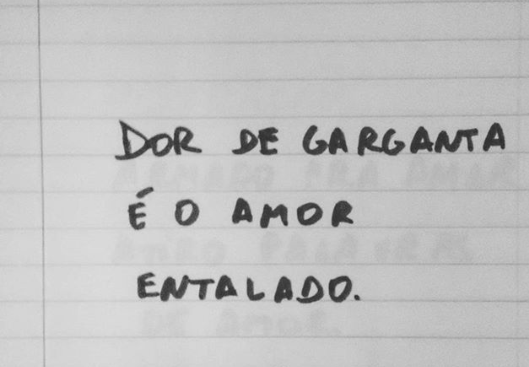 DOR DE GARGANTA
É O AMOR
ENTALADO.